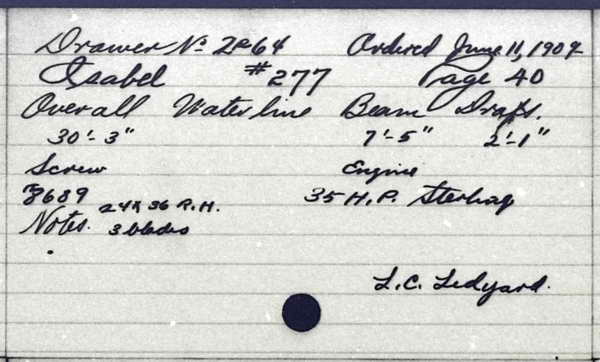 Drawer No. 2P64 Ordered June 11, 1909
Isabel #277 Page 40
Overall Waterline Beam Draft.
30'-3" 7'-5" 2'-1"
Screw Engine
8689 24 x 36 R.H. 35 H.P. Sterling
Notes. 3 blades
L.C. Ledyard.